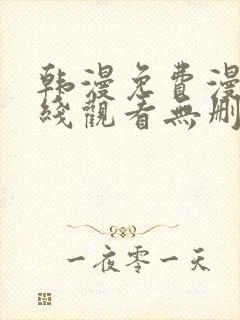 韩漫免費漫
綫觀看無刪
一夜零一天